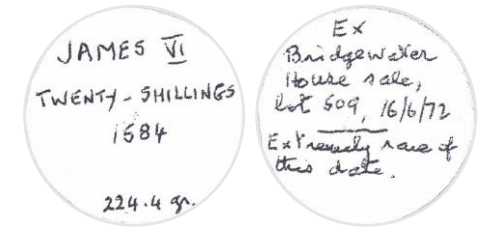 JAMES VI
TWENTY-SHILLINGS
1584
224.4 gr.
Ex
Bridgewater
House sale,
lot 509, 16/6/72
Extremely rare of
this date.